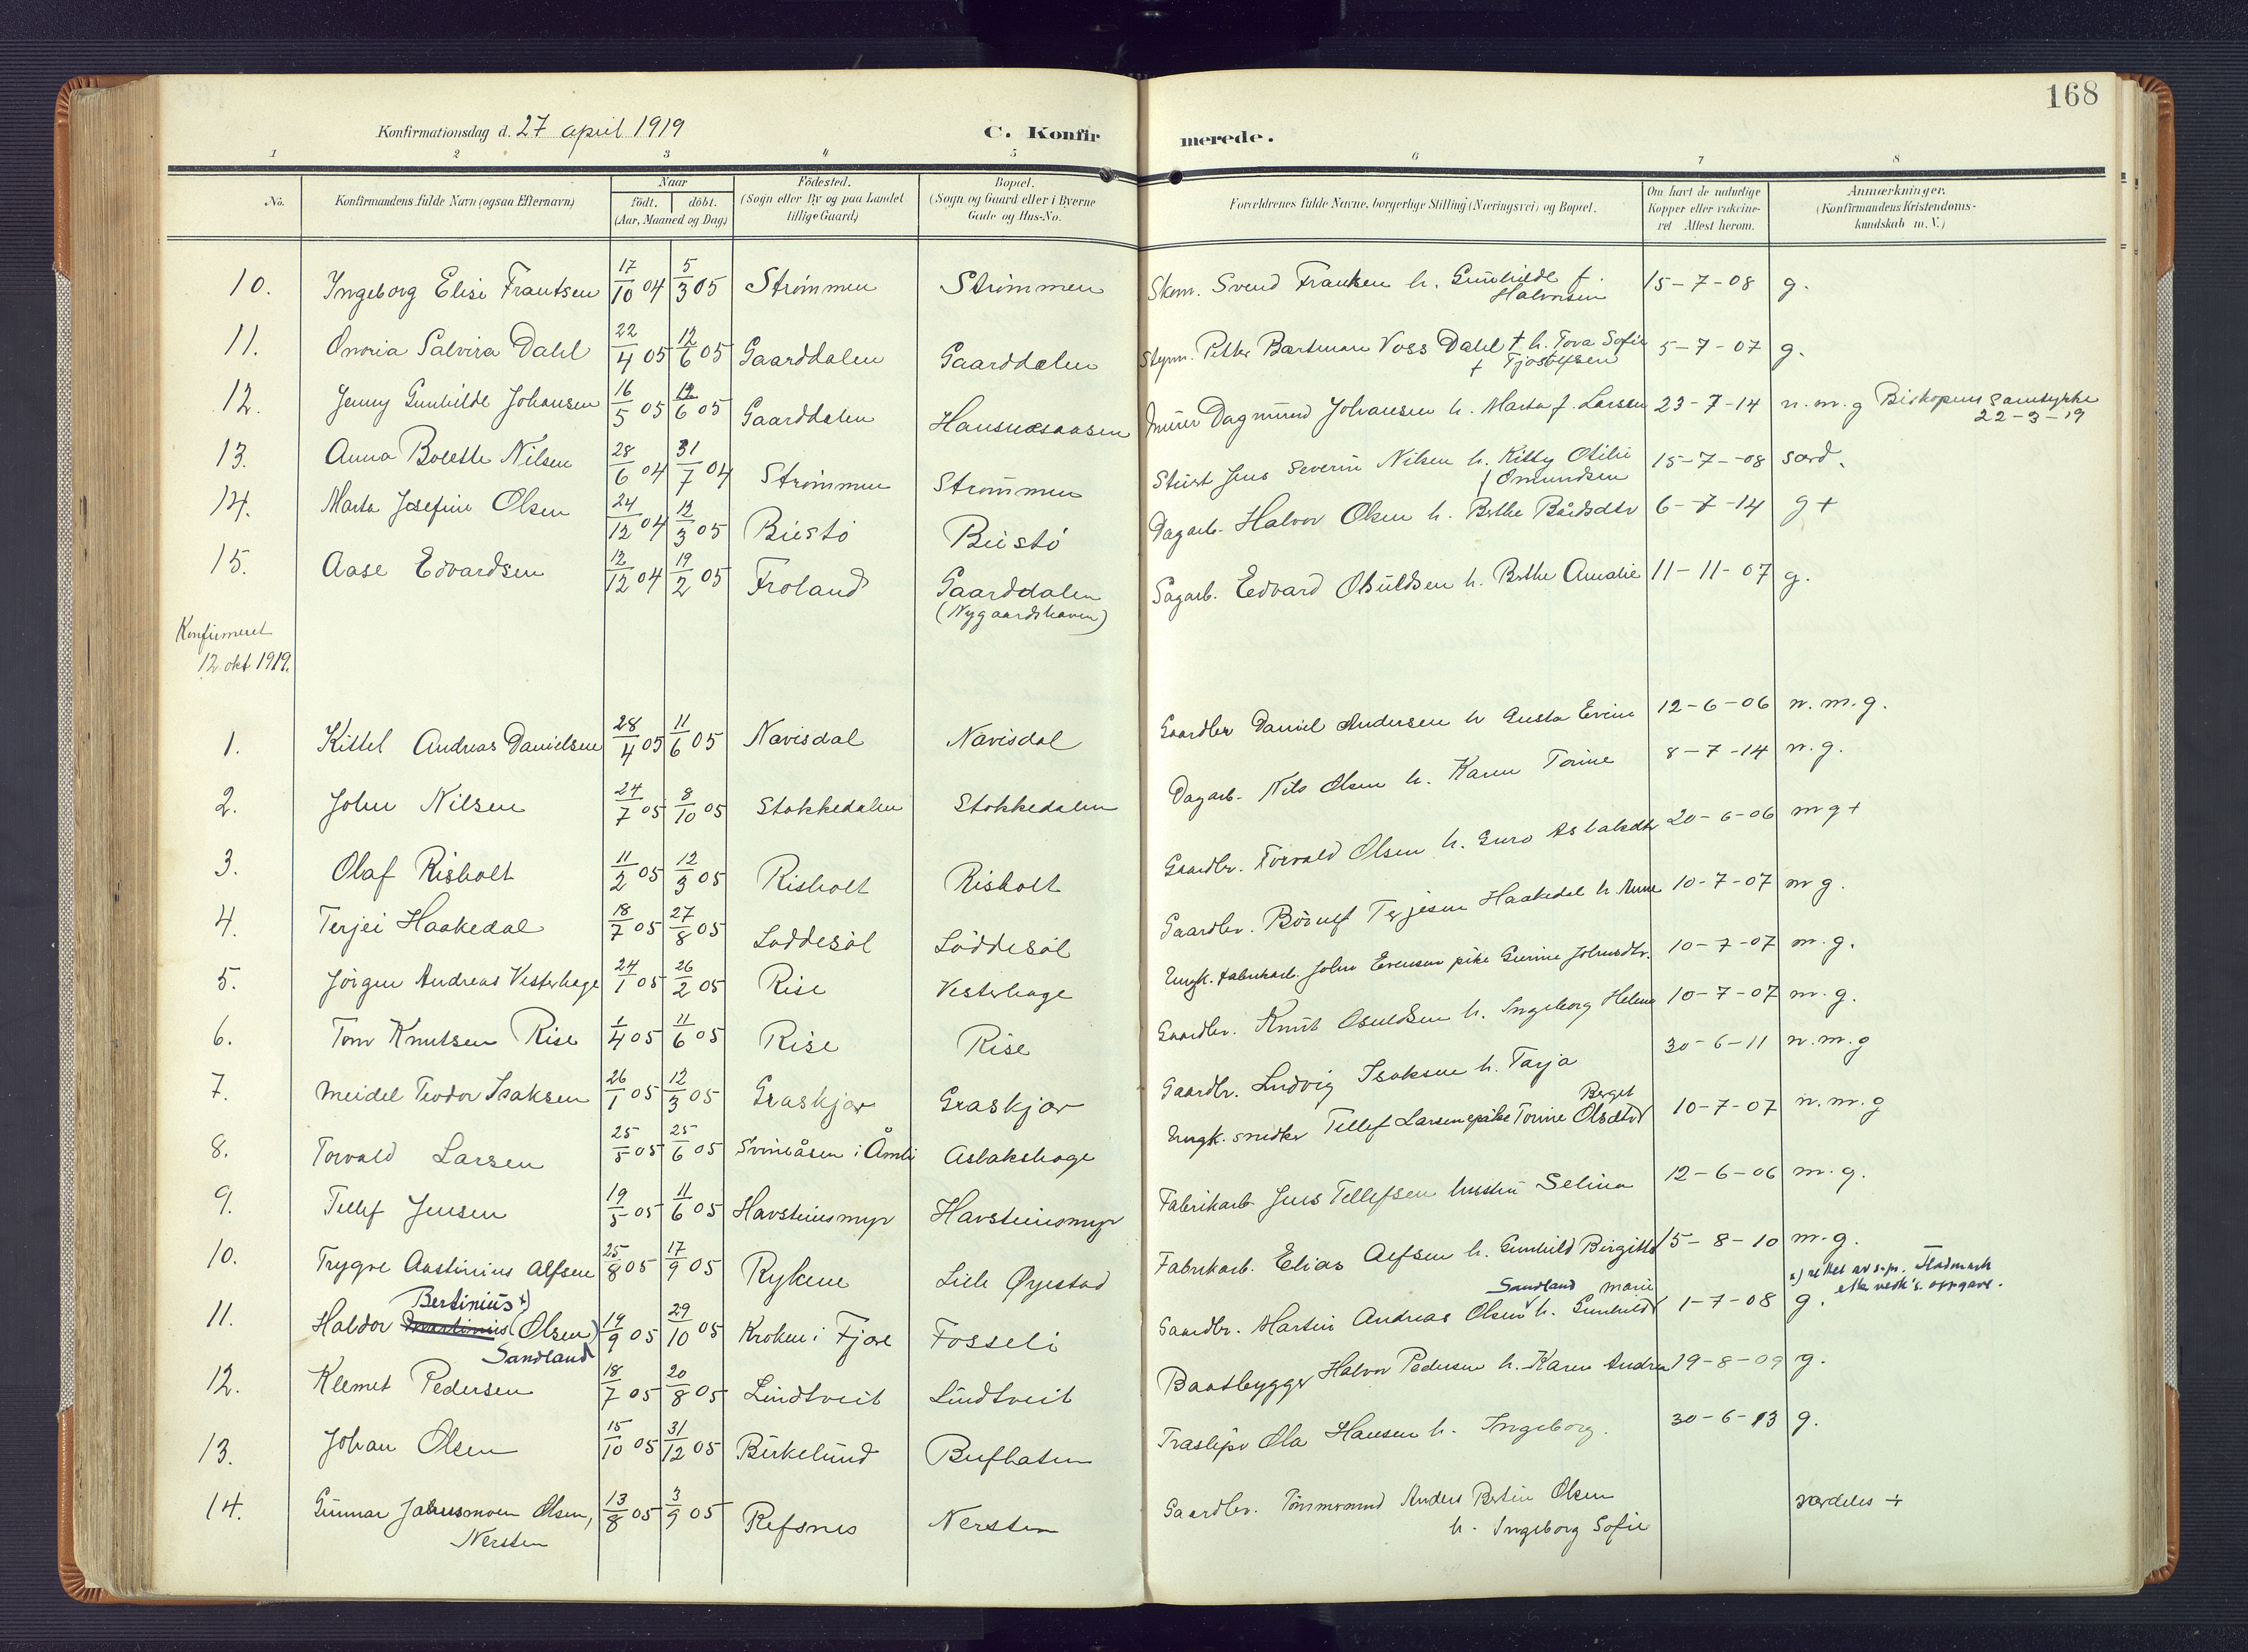 168
Konfirmationsdag d. 27 april 1919
C. Konfir merede.
1 2 3 4 5 6 7 8
No.
Konfirmandens fulde Navn (ogsaa Efternavn)
Naar
født. døbt.
(Aar, Maaned og Dag)
Födested.
(Sogn eller By og paa Landet
tillige Gaard)
Bopæl.
(Sogn og Gaard eller i Byerne
Gade og Hus-No.
Forældrenes fulde Navne, borgerlige Stilling (Næringsvei) og Bopæl.
Om havt de naturlige
Kopper eller vakcine-
ret Attest herom.
Anmærkninger.
(Konfirmandens Kristendoms-
kundskab m. V.)
10. Ingeborg Elise Frantsen 17/10 04 5/3 05 Strømmen Strømmen Skom. Svend Frantsen h. Gunhilde f. 15-7-08 g.
Halvorsen
11. Onoria Salvira Dahl 22/4 05 12/6 05 Gaarddalen Gaarddalen Styrm. Petter Bartman Voss Dahl † h. Tova Sofie 5-7-07 g.
12. Jenny Gunhilde Johansen 16/5 05 12/6 05 Gaarddalen Murer Dagmund Johansen h. Marta f. Larsen 23-7-14 n.m.g Biskopens samtykke
22-3-19
13. Anna Bolette Nilsen 28/6 04 31/7 04 Strømmen Strømmen Jens Severin Nilsen h. Kitty Otilie 15-7-08 særd.
f Omundsen
14. Marta Josefine Olsen 24/12 04 12/3 05 Buestø Buestø Dagarb. Halvor Olsen h. Berthe Bårdsdtr 6-7-14 g +
15. Aase Edvardsen 12/12 04 19/2 05 Froland Gaarddalen Sagarb. Edvard Osuldsen h. Berthe Amalie 11-11-07 g.
(Nygaardshaven)
Konfirmeret
12 okt 1919.
1. Kittel Andreas Danielsen 28/4 05 11/6 05 Navisdal Navisdal Gaardbr Daniel Andersen h 12-6-06 n.m.g.
2. John Nilsen 24/7 05 8/10 05 Stokkedalen Stokkedalen Dagarb. Nils Olsen h. Karen Torine 8-7-14 n.g.
3. Olaf Risholt 11/2 05 12/3 05 Risholt Risholt Gaardbr. Torvald Olsen h. Guro Aslaksdtr 20-6-06 m g +
4. Terjei Haakedal 18/7 05 27/8 05 Løddesøl Løddesøl Gaardbr. Terjesen Haakedal h. Anne 10-7-07 m g.
5. Jörgen Andreas Vesterhage 24/1 05 26/2 05 Rise Vesterhage Ungk. fabrikarb. John Evensen pike Johnsdtr. 10-7-07 m.g.
6. Tom Knutsen Rise 1/4 05 11/6 05 Rise Rise Gaardbr. Knut Osuldsen h. Ingeborg Helene 10-7-07 m.g.
7. Meidel Teodor Isaksen 26/1 05 12/3 05 Graskjær Graskjær Gaardbr. Ludvig Isaksen h. Tarja 30-6-11 n.m.g
Berget
8. Torvald Larsen 25/5 05 25/6 05 Svineåsen i Åmli Aslakshage Ungk. snedker Tellef Larsen pike Torine Olsdtr 10-7-07 n.m.g
9. Tellef Jensen 19/5 05 11/6 05 Havsteinsmyr Havsteinsmyr Fabrikarb. Jens Tellefsen hustru Selina 12-6-06 m.g.
10. Trygve Austinius Alfsen 25/8 05 17/9 05 Rykene Lille Øyestad Fabrikarb. Elias Alfsen h. Gunhild Birgitte 15-8-10 m.g.
x) rettet av s.pr. Fladmark
Bertinius x) Sandland marie
11. Haldor Martinius (Olsen) 19/9 05 29/10 05 Kroken i Fjære Fosseli Gaardbr. Martin Andreas Olsen h. Gunhild 1-7-08 g.
Sandland
12. Klemet Pedersen 18/7 05 20/8 05 Lindtveit Lindtveit Baatbygger Halvor Pedersen h. Karen Andrea 19-8-09 g.
13. Johan Olsen 15/10 05 31/12 05 Birkelund Træsliper Ola Hansen h. Ingeborg. 30-6-13 g.
14. Gunnar Olsen, 13/8 05 3/9 05 Refsnes Nersten Gaardbr. Tømmermand Anders Bertin Olsen særdeles +
Nersten h. Ingeborg Sofie